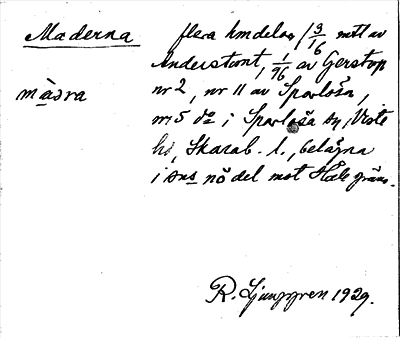 Maderna
flera hmdelar, 3/16 mtl av
Anderstomt, 1/96 av Gerstop
màdra
nr 2, nr 11 av Sparlösa,
nr 5 do i Sparlösa by, Viste
hd, Skarab. l., belägna
i sns nö del mot Håle gräns.
R. Ljunggren 1929.